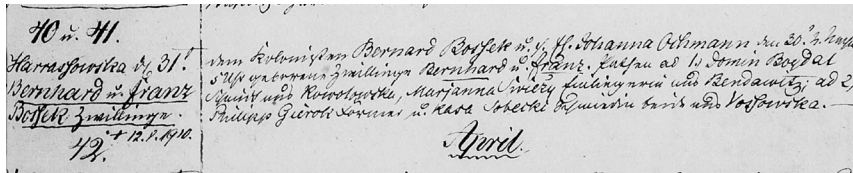 40 u. 41.
Harraschowska d. 31t
Bernhard u. Franz
Bossek Zwillinge.
+ 12.1.1910.
42.
dem Kolonisten Bernard Bossek u. s. Fr. Johanna Ochmann den 30t
5 Uhr geborene Zwillinge Bernhard u. Franz. Pathen ad 1, Domin Bogdal
Schmidt aus Kowolowska, Marjanna Swiezy Einliegerin aus Bendawitz; ad 2,
Philipp Gierok Former u. Kasa Sobecki Schmiedin beide aus Vossowska.
April.